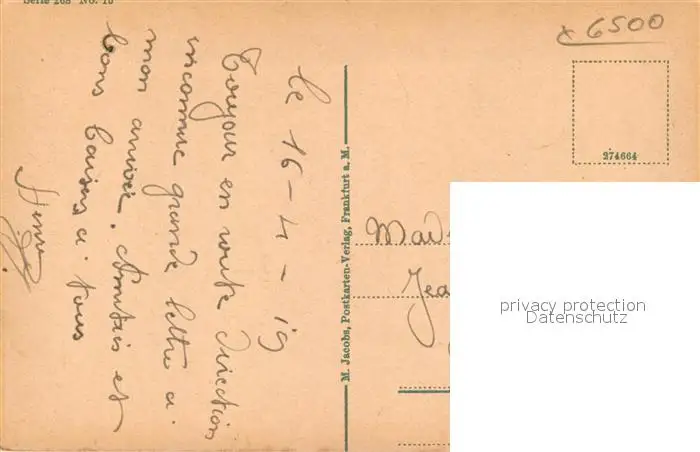 Serie 268 No. 16
x 6500
le 16-4-19
Toujour en route direction
inconnue grande lettre a
mon arrivée. Amitiés et
bons baisers a tous
M. Jacobs, Postkarten-Verlag, Frankfurt a. M.
274664
Mad
Jea
privacy protection
Datenschutz